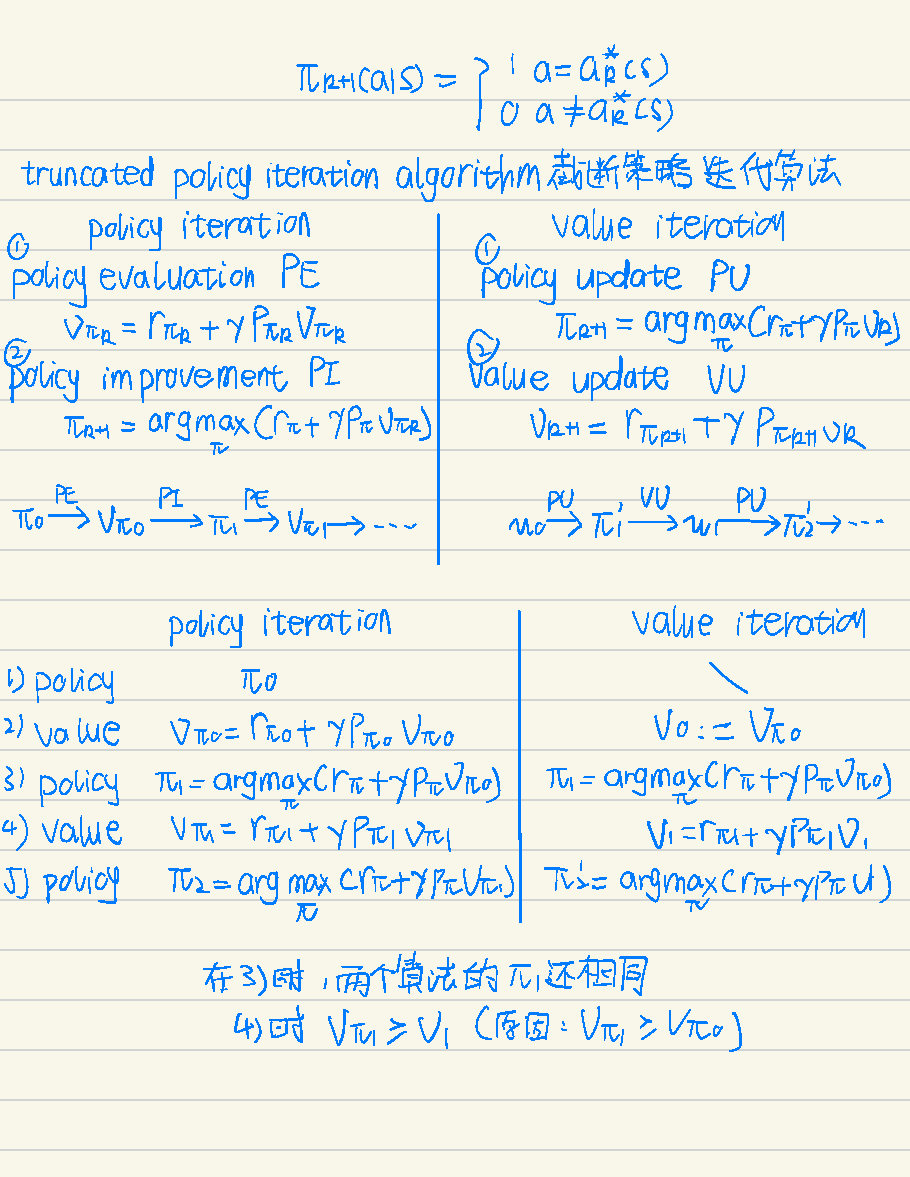 πk+1(a|s) = { 1 a = a*k(s)
0 a ≠ a*k(s)
truncated policy iteration algorithm 截断策略迭代算法
policy iteration
① policy evaluation PE
vπk = rπk + γPπk vπk
② policy improvement PI
πk+1 = argmaxπ (rπ + γPπ vπk)
π0 —PE→ vπ0 —PI→ π1 —PE→ vπ1 → ....
value iteration
① policy update PU
πk+1 = argmaxπ (rπ + γPπ vk)
② value update VU
vk+1 = rπk+1 + γ Pπk+1 vk
u0 —PU→ π1' —VU→ u1 —PU→ π2' → ...
policy iteration value iteration
1) policy π0 \
2) value vπ0 = rπ0 + γPπ0 vπ0 v0 := vπ0
3) policy π1 = argmaxπ (rπ + γPπ vπ0) π1 = argmaxπ (rπ + γPπ vπ0)
4) value vπ1 = rπ1 + γPπ1 vπ1 v1 = rπ1 + γPπ1 v1
5) policy π2 = argmaxπ (rπ + γPπ vπ1) π2' = argmaxπ (rπ + γPπ v1)
在3)时,两个算法的π1还相同
4)时 vπ1 ≥ v1 (原因: vπ1 ≥ vπ0)